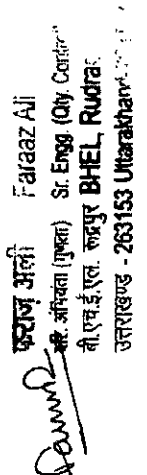 फराज़ अली Faraaz Ali
वरि. अभियंता (गुणता) Sr. Engg. (Qty. Control)
बी.एच.ई.एल. रूद्रपुर BHEL, Rudrap
उत्तराखण्ड - 263153 Uttarakhand